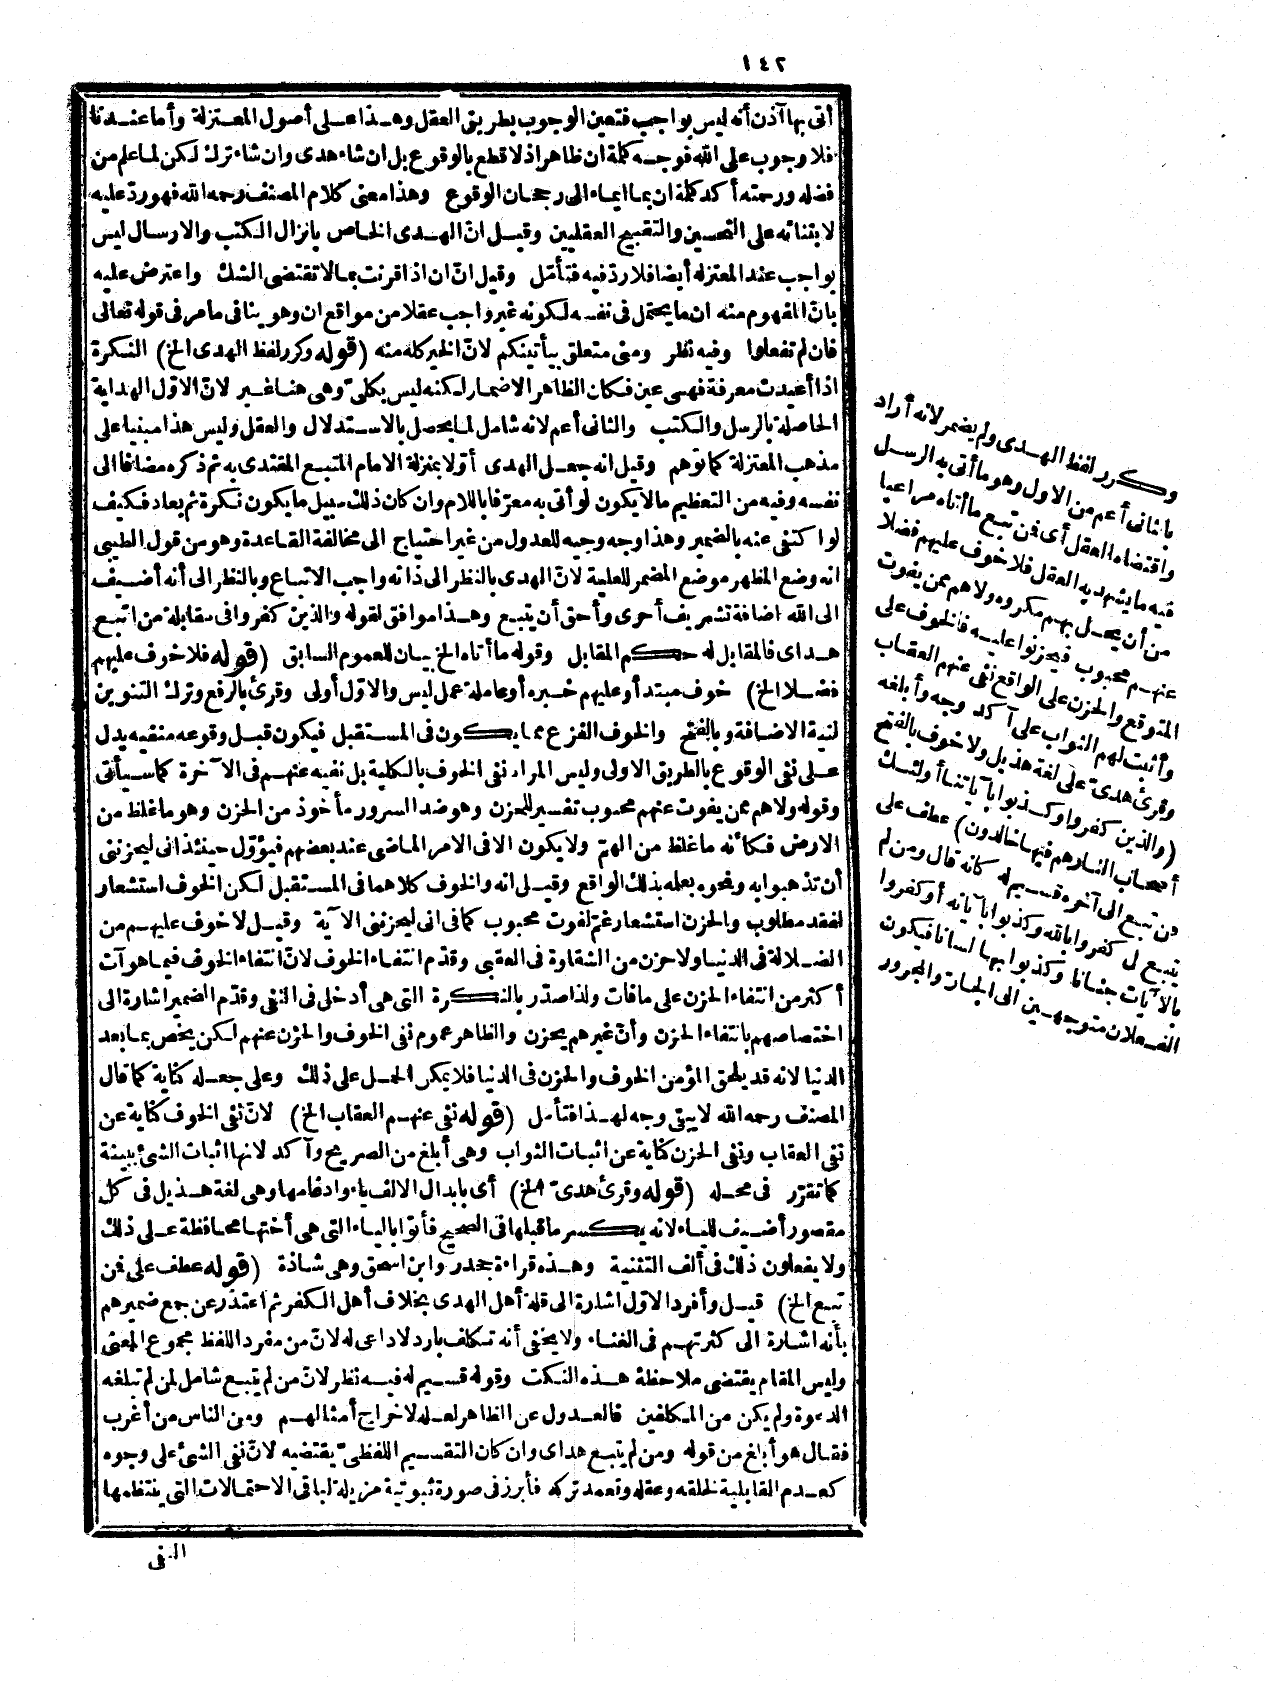 ١٤٢
أتى بها آذن أنه ليس بواجب فتعين الوجوب بطريق العقل وهذا على أصول المعتزلة وأما عندنا
فلا وجوب على الله فوجه كلمة ان ظاهر اذ لا قطع بالوقوع بل ان شاء هدى وان شاء ترك لكن لما علم من
فضله ورحمته أكد كلمة ان بما ايماء الى رجحان الوقوع وهذا معنى كلام المصنف رحمه الله فهو ردّ عليه
لابتنائه على التحسين والتقبيح العقليين وقيل انّ الهدى الخاص بانزال الكتب والارسال ليس
بواجب عند المعتزلة أيضا فلا ردّ فيه فتأمّل وقيل انّ ان اذا قرنت بما لا تقتضى الشك واعترض عليه
بانّ المفهوم منه ان ما يحتمل فى نفسه لكونه غير واجب عقلا من مواقع ان وهو ينافى ما مر فى قوله تعالى
فان لم تفعلوا وفيه نظر ومنى متعلق بيأتينكم لانّ الخير كله منه (قوله وكرر لفظ الهدى الخ) النكرة
اذا أعيدت معرفة فهى عين فكان الظاهر الاضمار لكنه ليس بكلىّ وهى هنا غير لانّ الاوّل الهداية
الحاصلة بالرسل والكتب والثانى أعم لانه شامل لما يحصل بالاستدلال والعقل وليس هذا مبنيا على
مذهب المعتزلة كما توهم وقيل انه جعل الهدى أوّلا بمنزلة الامام المتبع المقتدى به ثم ذكره مضافا الى
نفسه وفيه من التعظيم ما لا يكون لو أتى به معرّفا باللام وان كان ذلك سبيل ما يكون نكرة ثم يعاد فكيف
لو اكتفى عنه بالضمير وهذا وجه وجيه للعدول من غير احتياج الى مخالفة القاعدة وهو من قول الطيبى
انه وضع المظهر موضع المضمر للعلية لانّ الهدى بالنظر الى ذاته واجب الاتباع وبالنظر الى أنه أضيف
الى الله اضافة تشريف أحرى وأحق أن يتبع وهذا موافق لقوله والذين كفروا فى مقابلة من اتبع
هداى فالمقابل له حكم المقابل وقوله ما أتاه الخ بيان للعموم السابق (قوله فلا خوف عليهم
فضلا الخ) خوف مبتدأ وعليهم خبره أو عاملة عمل ليس والاوّل أولى وقرئ بالرفع وترك التنوين
لنية الاضافة وبالفتح والخوف الفزع مما يكون فى المستقبل فيكون قبل وقوعه منفيه يدل
على نفى الوقوع بالطريق الاولى وليس المراد نفى الخوف بالكلية بل نفيه عنهم فى الآخرة كما سيأتى
وقوله ولا هم ممن يفوت عنهم محبوب تفسير للحزن وهو ضد السرور مأخوذ من الحزن وهو ما غلظ من
الارض فكأنه ما غلظ من الهمّ ولا يكون الا فى الامر الماضى عند بعضهم فيؤوّل حينئذ انى ليحزننى
أن تذهبوا به ونحوه بعلمه بذلك الواقع وقيل انه والخوف كلاهما فى المستقبل لكن الخوف استشعار
لفقد مطلوب والحزن استشعار غمّ لفوت محبوب كما فى انى ليحزننى الآية وقيل لا خوف عليهم من
الضلالة فى الدنيا ولا حزن من الشقاوة فى العقبى وقدّم انتفاء الخوف لانّ انتفاء الخوف فيما هو آت
أكثر من انتفاء الحزن على ما فات ولذا صدّر بالنكرة التى هى أدخل فى النفى وقدّم الضمير اشارة الى
اختصاصهم بانتفاء الحزن وأنّ غيرهم يحزن والظاهر عموم نفى الخوف والحزن عنهم لكن يخص بما بعد
الدنيا لانه قد يلحق المؤمن الخوف والحزن فى الدنيا فلا يمكن الحمل على ذلك وعلى جعله كناية كما قال
المصنف رحمه الله لا يبقى وجه لهذا فتأمل (قوله نفى عنهم العقاب الخ) لانّ نفى الخوف كناية عن
نفى العقاب ونفى الحزن كناية عن اثبات الثواب وهى أبلغ من الصريح وآكد لانها اثبات الشئ ببينة
كما تقرّر فى محله (قوله وقرئ هدىّ الخ) أى بابدال الالف ياء وادغامها وهى لغة هذيل فى كل
مقصور أضيف للياء لانه يكسر ما قبلها فى الصحيح فأتوا بالياء التى هى أختها محافظة على ذلك
ولا يفعلون ذلك فى ألف التثنية وهذه قراءة جحدر وابن اسحق وهى شاذة (قوله عطف على فمن
تبع الخ) قيل وأفرد الاوّل اشارة الى قلة أهل الهدى بخلاف أهل الكفر ثم اعتذر عن جمع ضميرهم
بأنه اشارة الى كثرتهم فى الغناء ولا يخفى أنه تكلف بارد لا داعى له لانّ من مفرد اللفظ مجموع المعنى
وليس المقام يقتضى ملاحظة هذه النكت وقوله قسيم له فيه نظر لانّ من لم يتبع شامل لمن لم تبلغه
الدعوة ولم يكن من المكلفين فالعدول عن الظاهر لعله لاخراج أمثالهم ومن الناس من أغرب
فقال هو أبلغ من قوله ومن لم يتبع هداى وان كان التقسيم اللفظىّ يقتضيه لانّ نفى الشئ على وجوه
كعدم القابلية لخلقه وعقله وتعمد تركه فأبرز فى صورة ثبوتية مزيلة لباقى الاحتمالات التى ينتظمها
النفى
وكرر لفظ الهدى ولم يضمر لانه أراد
بالثانى أعم من الاول وهو ما أتى به الرسل
واقتضاه العقل أى فمن تبع ما أتاه مراعيا
فيه ما يشهد به العقل فلا خوف عليهم فضلا
من أن يحل بهم مكروه ولا هم ممن يفوت
عنهم محبوب فيحزنوا عليه فالخوف على
المتوقع والحزن على الواقع نفى عنهم العقاب
وأثبت لهم الثواب على آكد وجه وأبلغه
وقرئ هدىّ على لغة هذيل ولا خوف بالفتح
(والذين كفروا وكذبوا بآياتنا أولئك
أصحاب النار هم فيها خالدون) عطف على
من تبع الى آخره قسيم له كانه قال ومن لم
يتبع بل كفروا بالله وكذبوا بآياته أو كفروا
بالآيات جنانا وكذبوا بها لسانا فيكون
الفعلان متوجهين الى الجار والمجرور